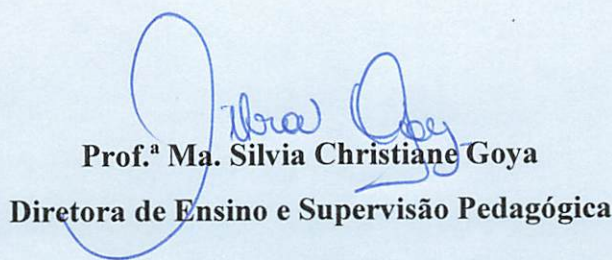 Prof.ª Ma. Silvia Christiane Goya
Diretora de Ensino e Supervisão Pedagógica